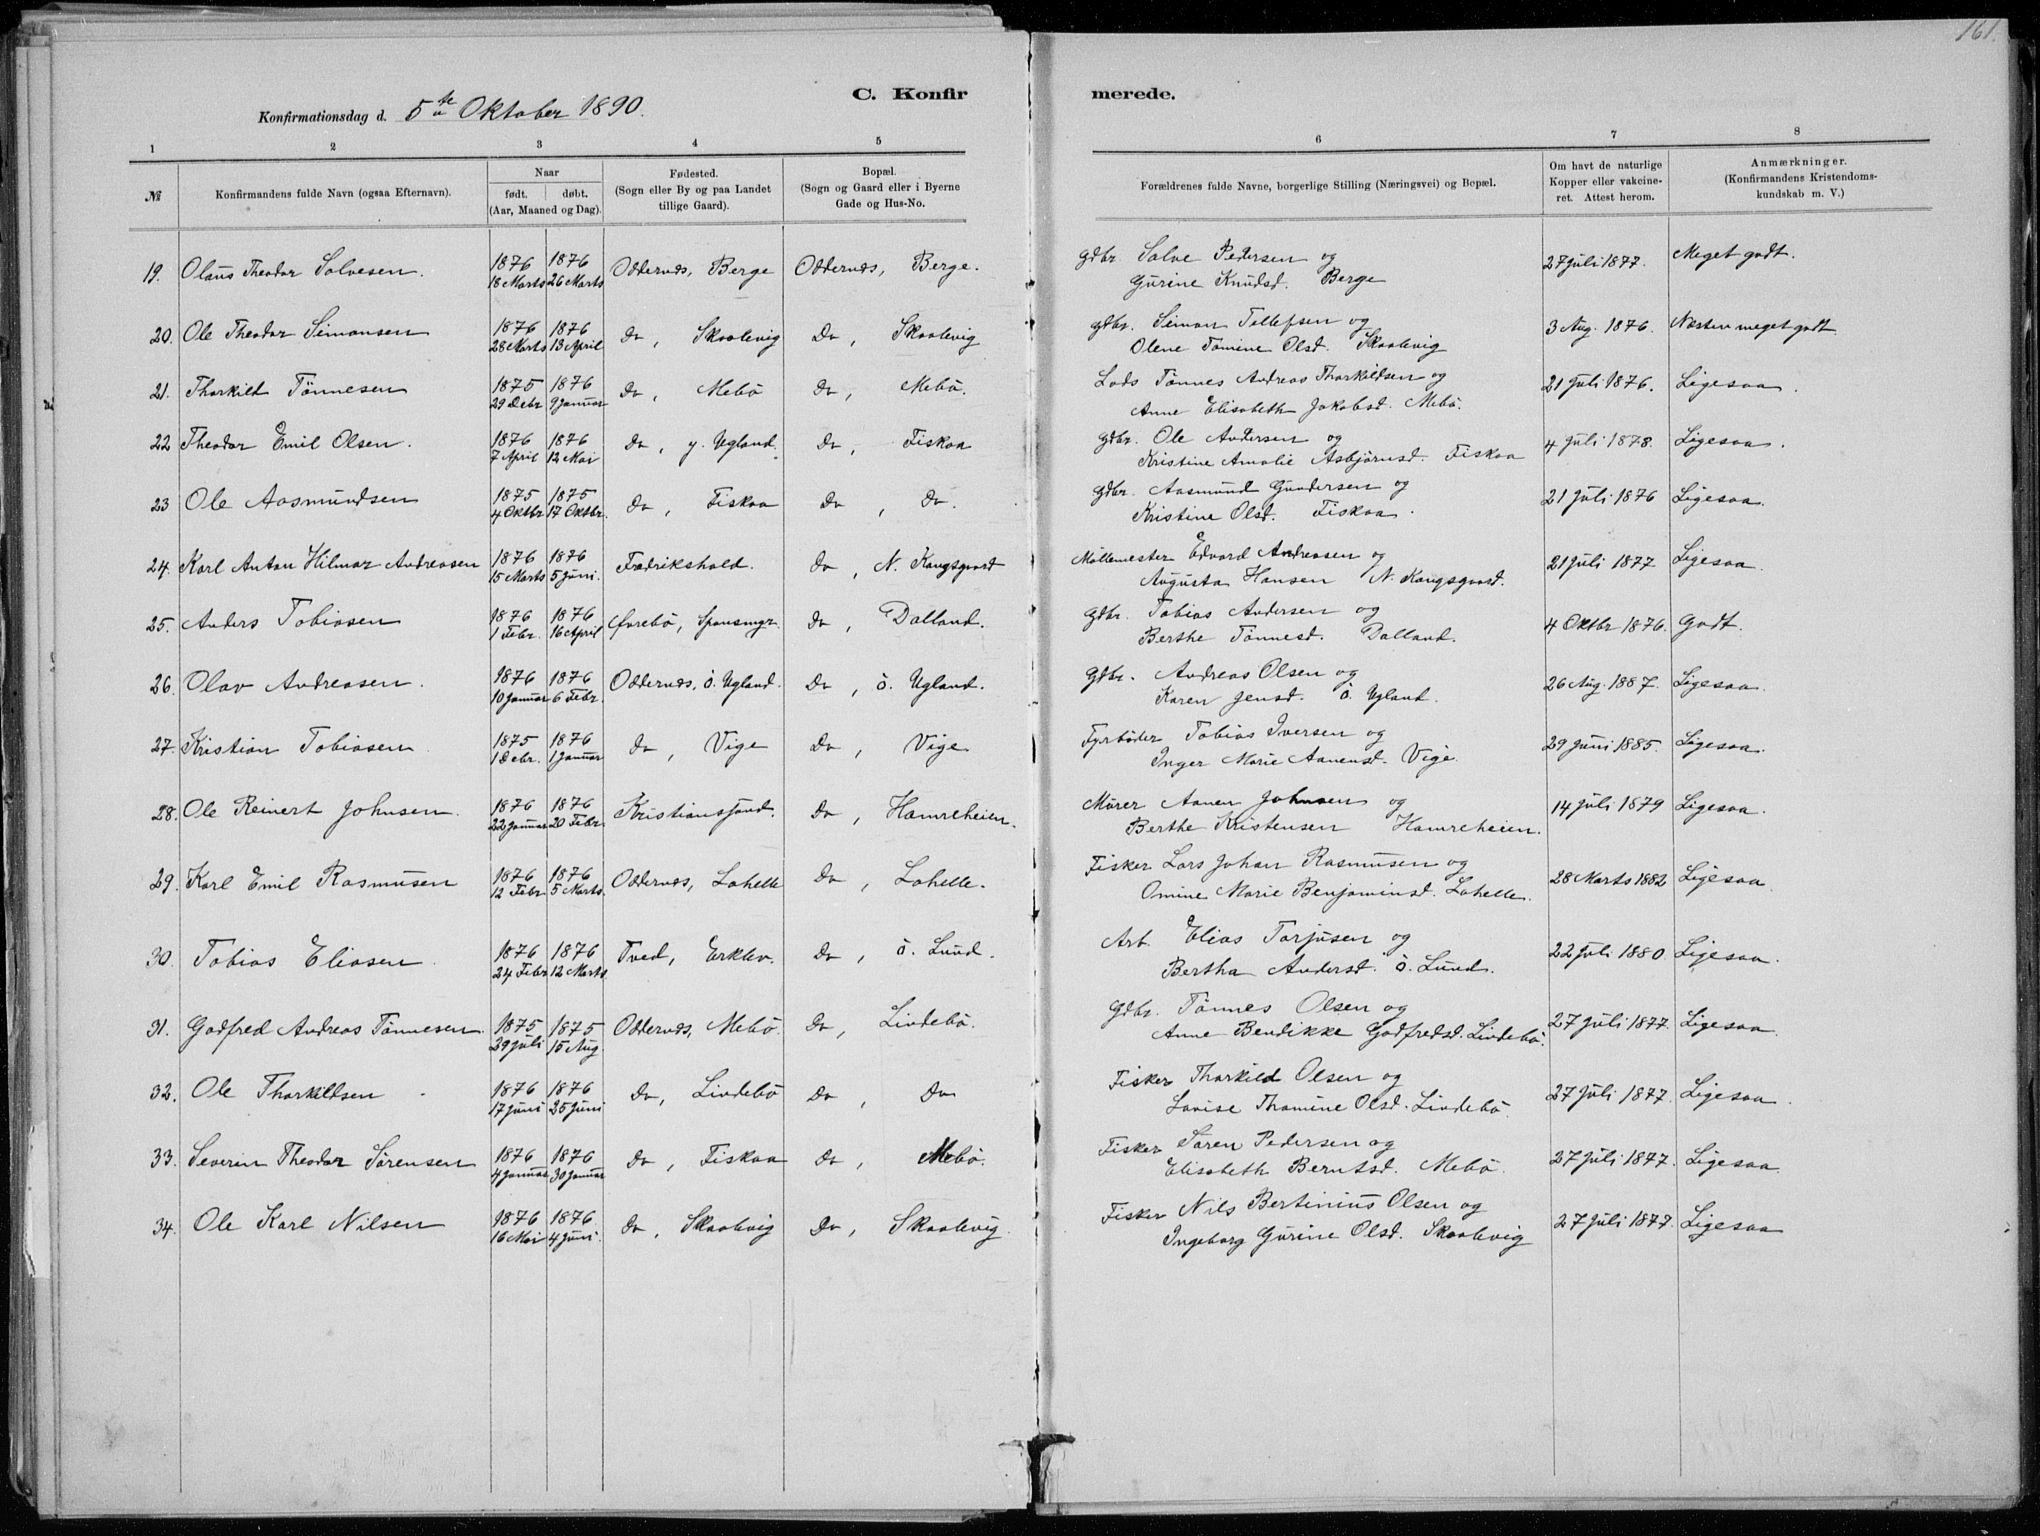 161.
C. Konfirmerede.
Konfirmationsdag d. 5te Oktober 1890.
1 2 3 4 5 6 7 8
№ Konfirmandens fulde Navn (ogsaa Efternavn). Naar født. døbt. (Aar, Maaned og Dag). Fødested. (Sogn eller By og paa Landet tillige Gaard). Bopæl. (Sogn og Gaard eller i Byerne Gade og Hus-No. Forældrenes fulde Navne, borgerlige Stilling (Næringsvei) og Bopæl. Om havt de naturlige Kopper eller vakcineret. Attest herom. Anmærkninger. (Konfirmandens Kristendomskundskab m. V.)
19. Olaus Theodor Solvesen. 1876 18 Marts 1876 26 Marts Oddernæs, Berge Oddernæs, Berge. Gdbr. Salve Pedersen og Gurine Knudsd. Berge 27 Juli 1877. Meget godt.
20. Ole Theodor Simonsen 1876 28 Marts 1876 13 April Do, Skaalevig Do, Skaalevig Gdbr. Simon Tellefsen og Olene Tomine Olsd. Skaalevig 3 Aug. 1876. Næsten meget godt
21. Thorkild Tönnesen 1875 29 Debr 1876 9 Januar Do, Mebö Do, Mebö. Lods Tönnes Andreas Thorkildsen og Anne Elisabeth Jakobsd. Mebö. 21 Juli 1876. Ligesaa.
22 Theodor Emil Olsen. 1876 7 April 1876 12 Mai Do, y. Ugland. Do, Fiskaa Gdbr. Ole Andersen og Kristine Amalie Asbjörnsd. Fiskaa 4 Juli 1878. Ligesaa.
23 Ole Aasmundsen 1875 4 Oktbr 1875 17 Oktbr. Do, Fiskaa Do, Do. Gdbr. Aasmund Gundersen og Kristine Olsd. Fiskaa. 21 Juli 1876 Ligesaa.
24. Karl Anton Hilmar Andreasen 1876 15 Marts 1876 5 Juni. Fredrikshald. Do, N. Kongsgaard Möllemester Edvard Andreasen og Augusta Hansen N. Kongsgaard. 21 Juli 1877 Ligesaa.
25. Anders Tobiasen 1876 1 Febr. 1876 16 April Øvrebö, Sponsmyr. Do, Dalland. Gdbr. Tobias Andersen og Berthe Tönnesd. Dalland. 4 Oktbr 1876. Godt.
26. Olav Andreasen. 1876 10 Januar 1876 6 Febr. Oddernæs, ö. Ugland. Do, ö. Ugland. Gdbr. Andreas Olsen og Karen Jensd. ö. Ugland. 26 Aug. 1887. Ligesaa.
27. Kristian Tobiasen 1875 1 Debr. 1876 1 Januar Do, Vige Do, Vige Fyrböder Tobias Iversen og Inger Marie Aanensd. Vige. 29 Juni 1885. Ligesaa.
28. Ole Reinert Johnsen. 1876 22 Januar 1876 20 Febr. Kristianssand. Do, Hamreheien. Murer Aanen Johnsen og Berthe Kristensen Hamreheien. 14 Juli 1879 Ligesaa.
29. Karl Emil Rasmusen 1876 12 Febr 1876 5 Marts. Oddernæs, Lahelle Do, Lahelle. Fisker Lars Johan Rasmusen og Omine Marie Benjaminsd. Lahelle. 28 Marts 1882 Ligesaa.
30. Tobias Eliasen. 1876 24 Febr 1876 12 Marts Tved, Erklev. Do, ö. Lund. Arb. Elias Torjusen og Bertha Andersd. ö. Lund. 22 Juli 1880. Ligesaa.
31. Godfred Andreas Tönnesen. 1875 29 Juli 1875 15 Aug. Oddernæs, Mebö. Do, Lindebö. Gdbr. Tönnes Olsen og Anne Bendikke Godfredsd. Lindebö. 27 Juli 1877. Ligesaa.
32. Ole Thorkildsen 1876 17 Juni 1876 25 Juni Do, Lindebö Do, Do Fisker Thorkild Olsen og Lovise Thomine Olsd. Lindebö. 27 Juli 1877. Ligesaa.
33. Severin Theodor Sörensen 1876 4 Januar 1876 30 Januar Do, Fiskaa Do, Mebö. Fisker Sören Pedersen og Elisabeth Berntsd. Mebö. 27 Juli 1877. Ligesaa
34. Ole Karl Nilsen 1876 16 Mai 1876 4 Juni. Do, Skaalevig Do, Skaalevig. Fisker Nils Bertinius Olsen og Ingeborg Gurine Olsd. Skaalevig 27 Juli 1877. Ligesaa